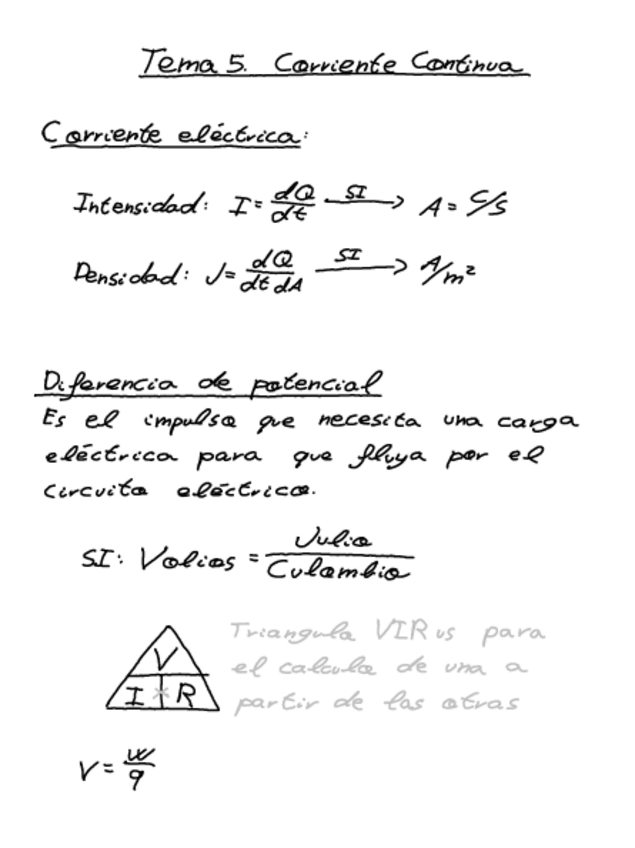 Tema 5. Corriente Continua
Corriente eléctrica:
Intensidad: I = dQ/dt SI → A = C/s
Densidad: J = dQ/dt dA SI → A/m²
Diferencia de potencial
Es el impulso que necesita una carga
eléctrica para que fluya por el
circuito eléctrico.
SI: Volios = Julio/Culombio
Triangulo VIRus para
V
el calculo de una a
I * R
partir de las otras
V = W/q